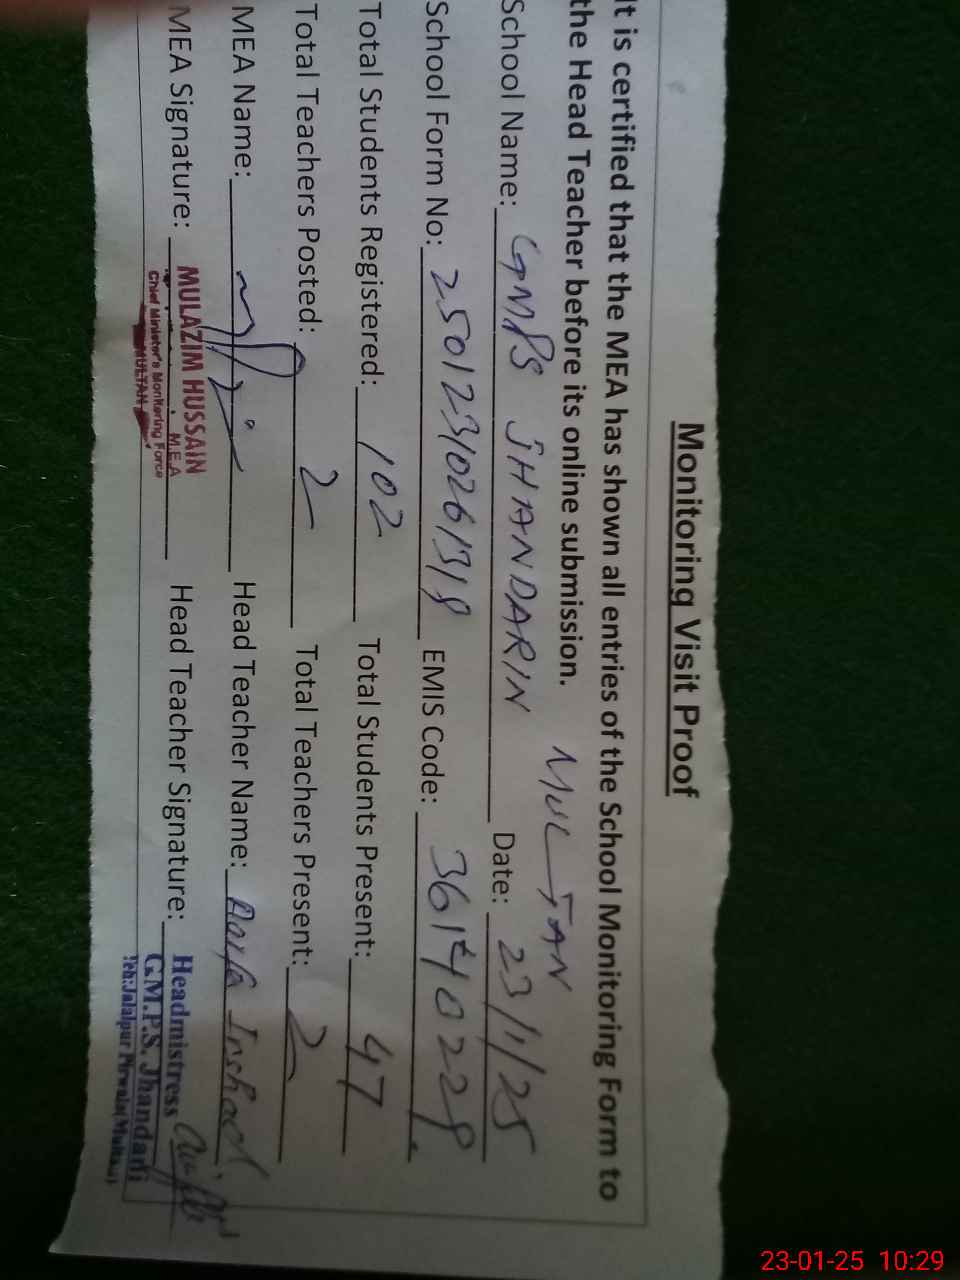 Monitoring Visit Proof
It is certified that the MEA has shown all entries of the School Monitoring Form to
the Head Teacher before its online submission.
MULTAN
School Name: GMPS JHANDARIN Date: 23/1/25
School Form No: 25012310261318 EMIS Code: 36140228
Total Students Registered: 102 Total Students Present: 47
Total Teachers Posted: 2 Total Teachers Present: 2
MEA Name: Head Teacher Name: Irshad
MEA Signature: Head Teacher Signature:
MULAZIM HUSSAIN
M.E.A
Chief Minister's Monitoring Force
MULTAN
Headmistress
G.M.P.S. Jhandani
Teh: Jalalpur Pirwala(Multan)
23-01-25 10:29